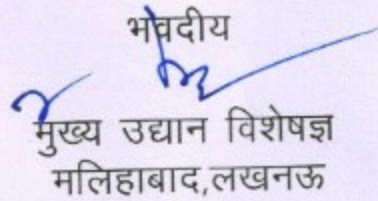 भवदीय
मुख्य उद्यान विशेषज्ञ
मलिहाबाद,लखनऊ